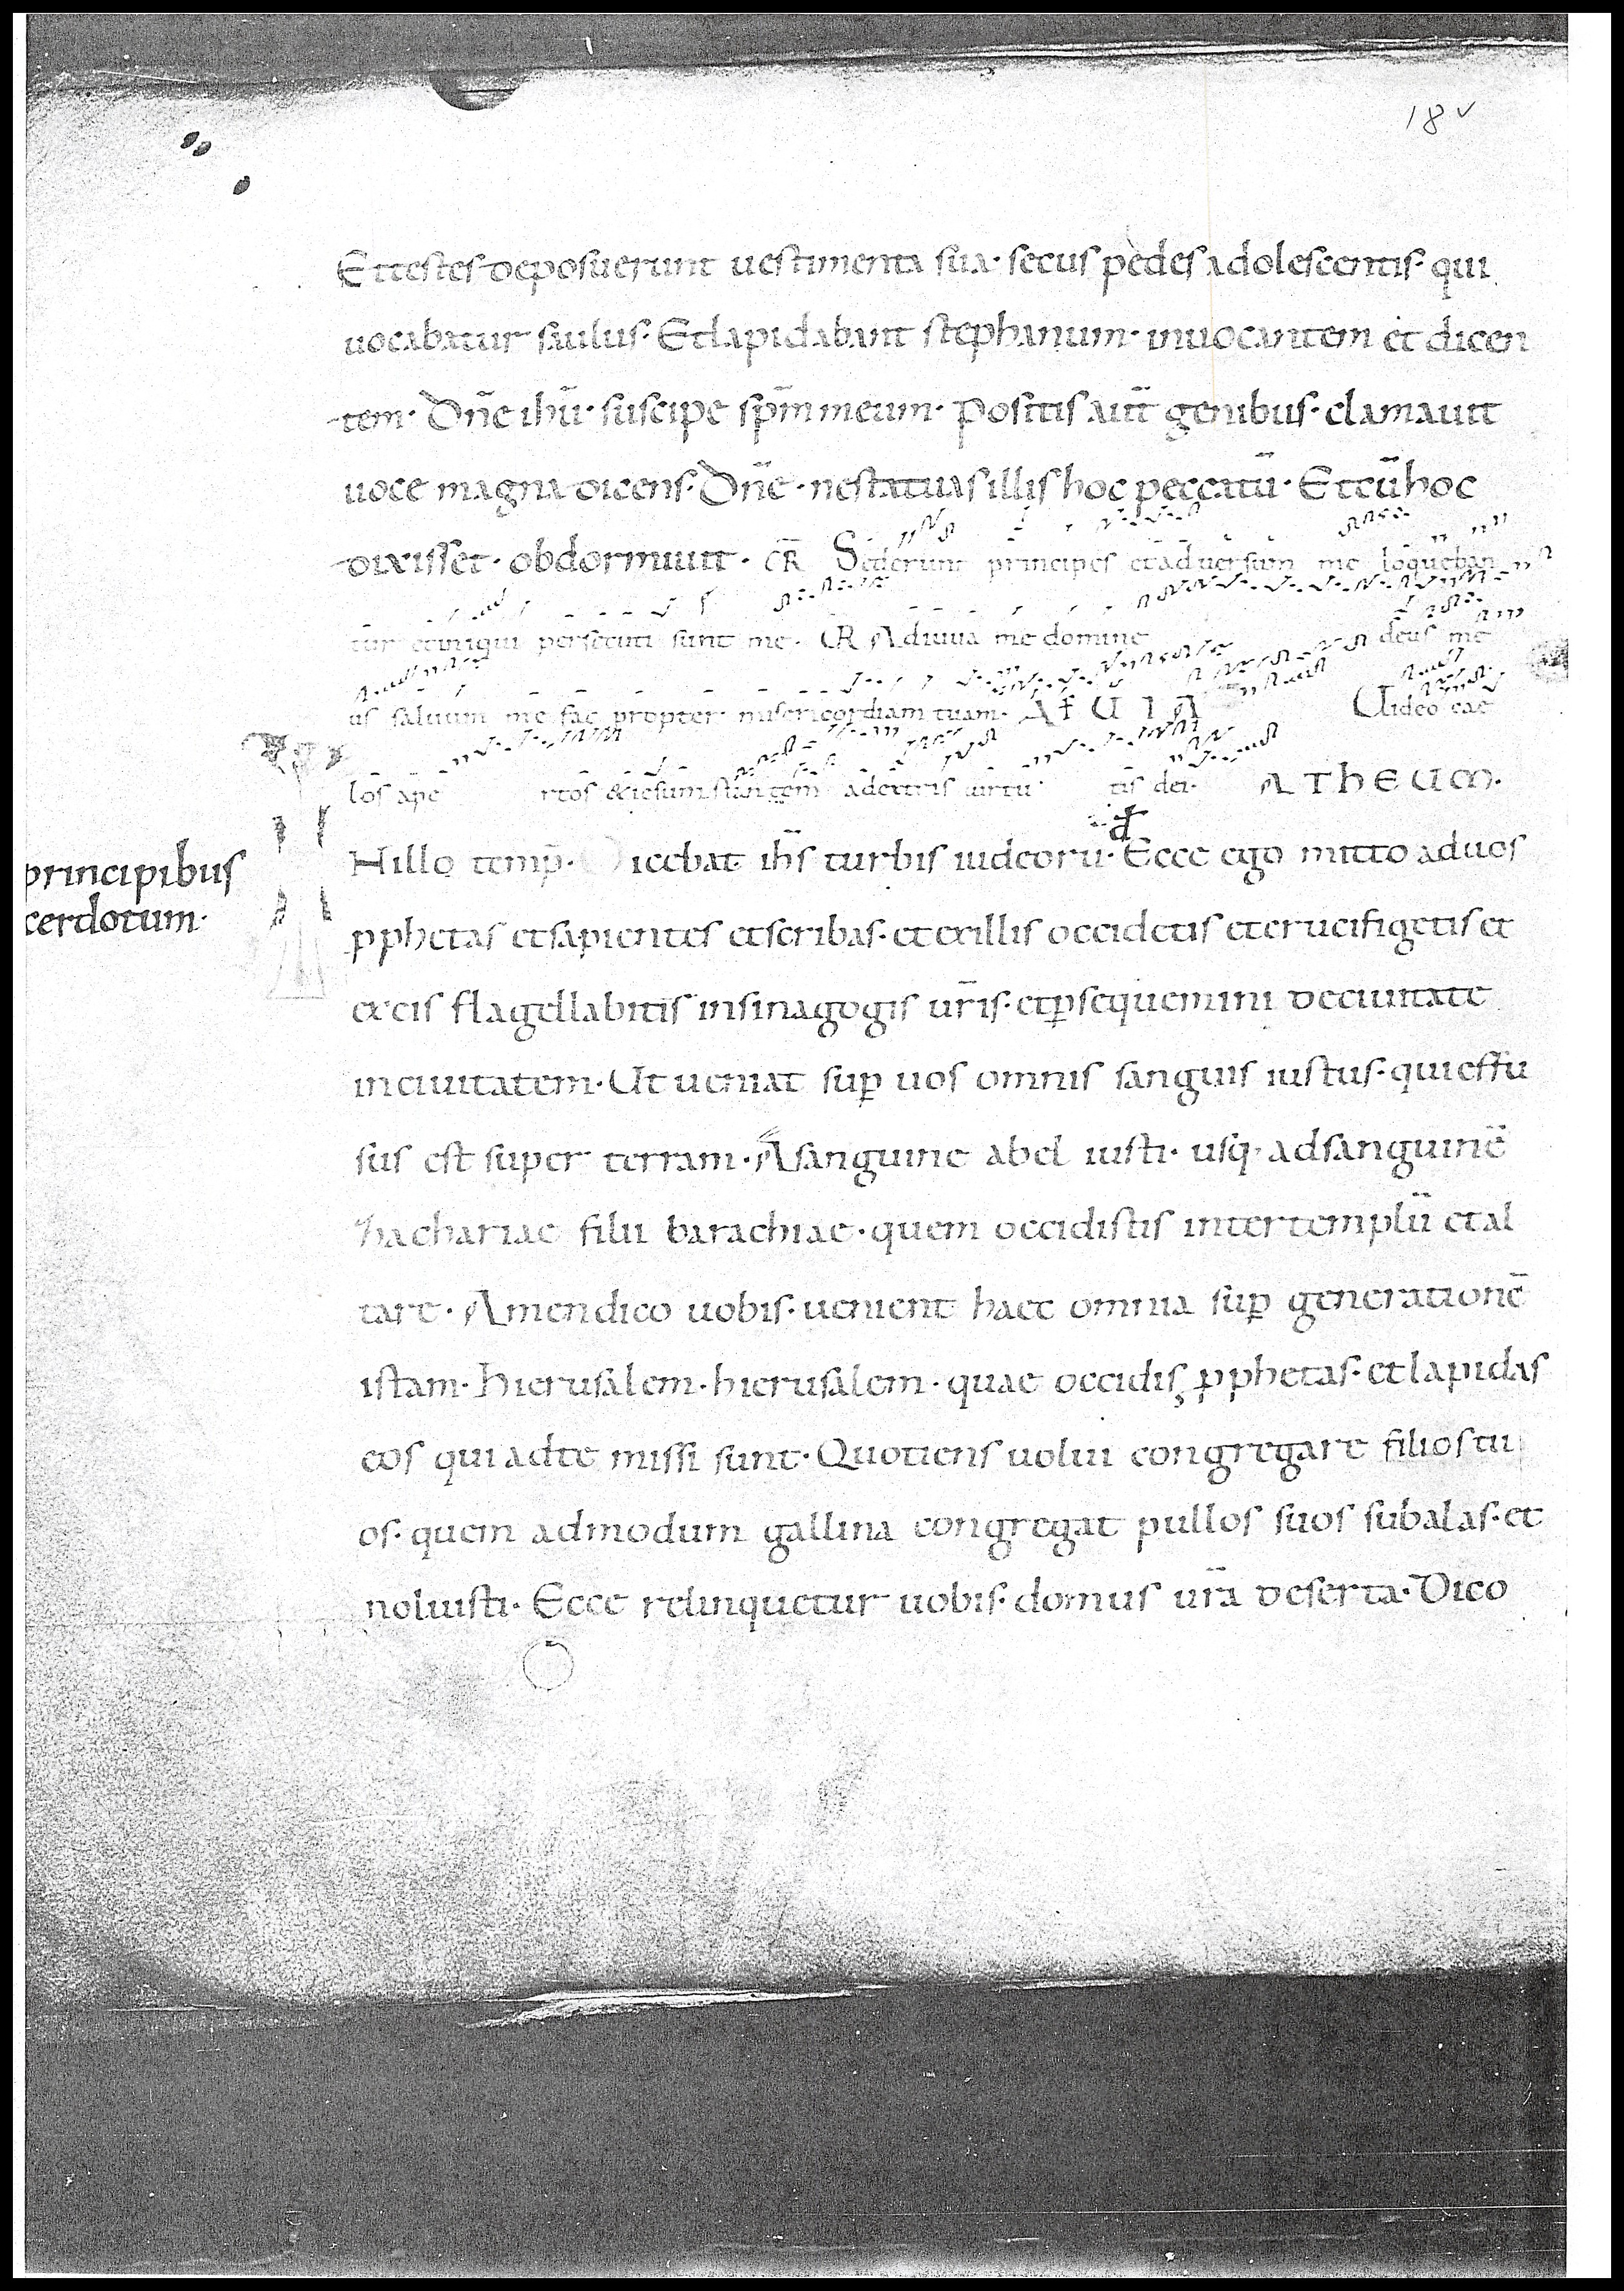 18v
Et testes deposuerunt uestimenta sua· secus pedes adolescentis· qui
uocabatur saulus· Et lapidabant stephanum· inuocantem et dicen
tem· Dñe ihū· suscipe spm̄ meum· Positis aut̄ genibus· clamauit
uoce magna dicens· Dñe· ne statuas illis hoc peccatū· Et cū hoc
dixisset· obdormiuit· GR Sederunt principes et aduersum me loqueban
tur et iniqui persecuti sunt me· GR Adiuua me domine deus me
us saluum me fac propter misericordiam tuam· AƚUIA Uideo cae
los ape rtos & iesum stantem adextris uirtu tis dei· ATHEUM·
IN illo temp̄· Dicebat ihs̄ turbis iudeorū· Ecce ego mitto ad uos
principibus
cerdotum·
pphetas et sapientes et scribas· et ex illis occidetis et crucifigetis et
ex eis flagellabitis in sinagogis ur̄is· et ꝑsequemini de ciuitate
in ciuitatem· Ut ueniat suꝑ uos omnis sanguis iustus· qui effu
sus est super terram· A sanguine abel iusti· usq· ad sanguinē
zachariae filii barachiae· quem occidistis inter templū et al
tare· Amen dico uobis· uenient haec omnia suꝑ generationē
istam· Hierusalem· hierusalem· quae occidis pphetas· et lapidas
eos qui ad te missi sunt· Quotiens uolui congregare filios tu
os· quem admodum gallina congregat pullos suos sub alas· et
noluisti· Ecce relinquetur uobis· domus ur̄a deserta· Dico